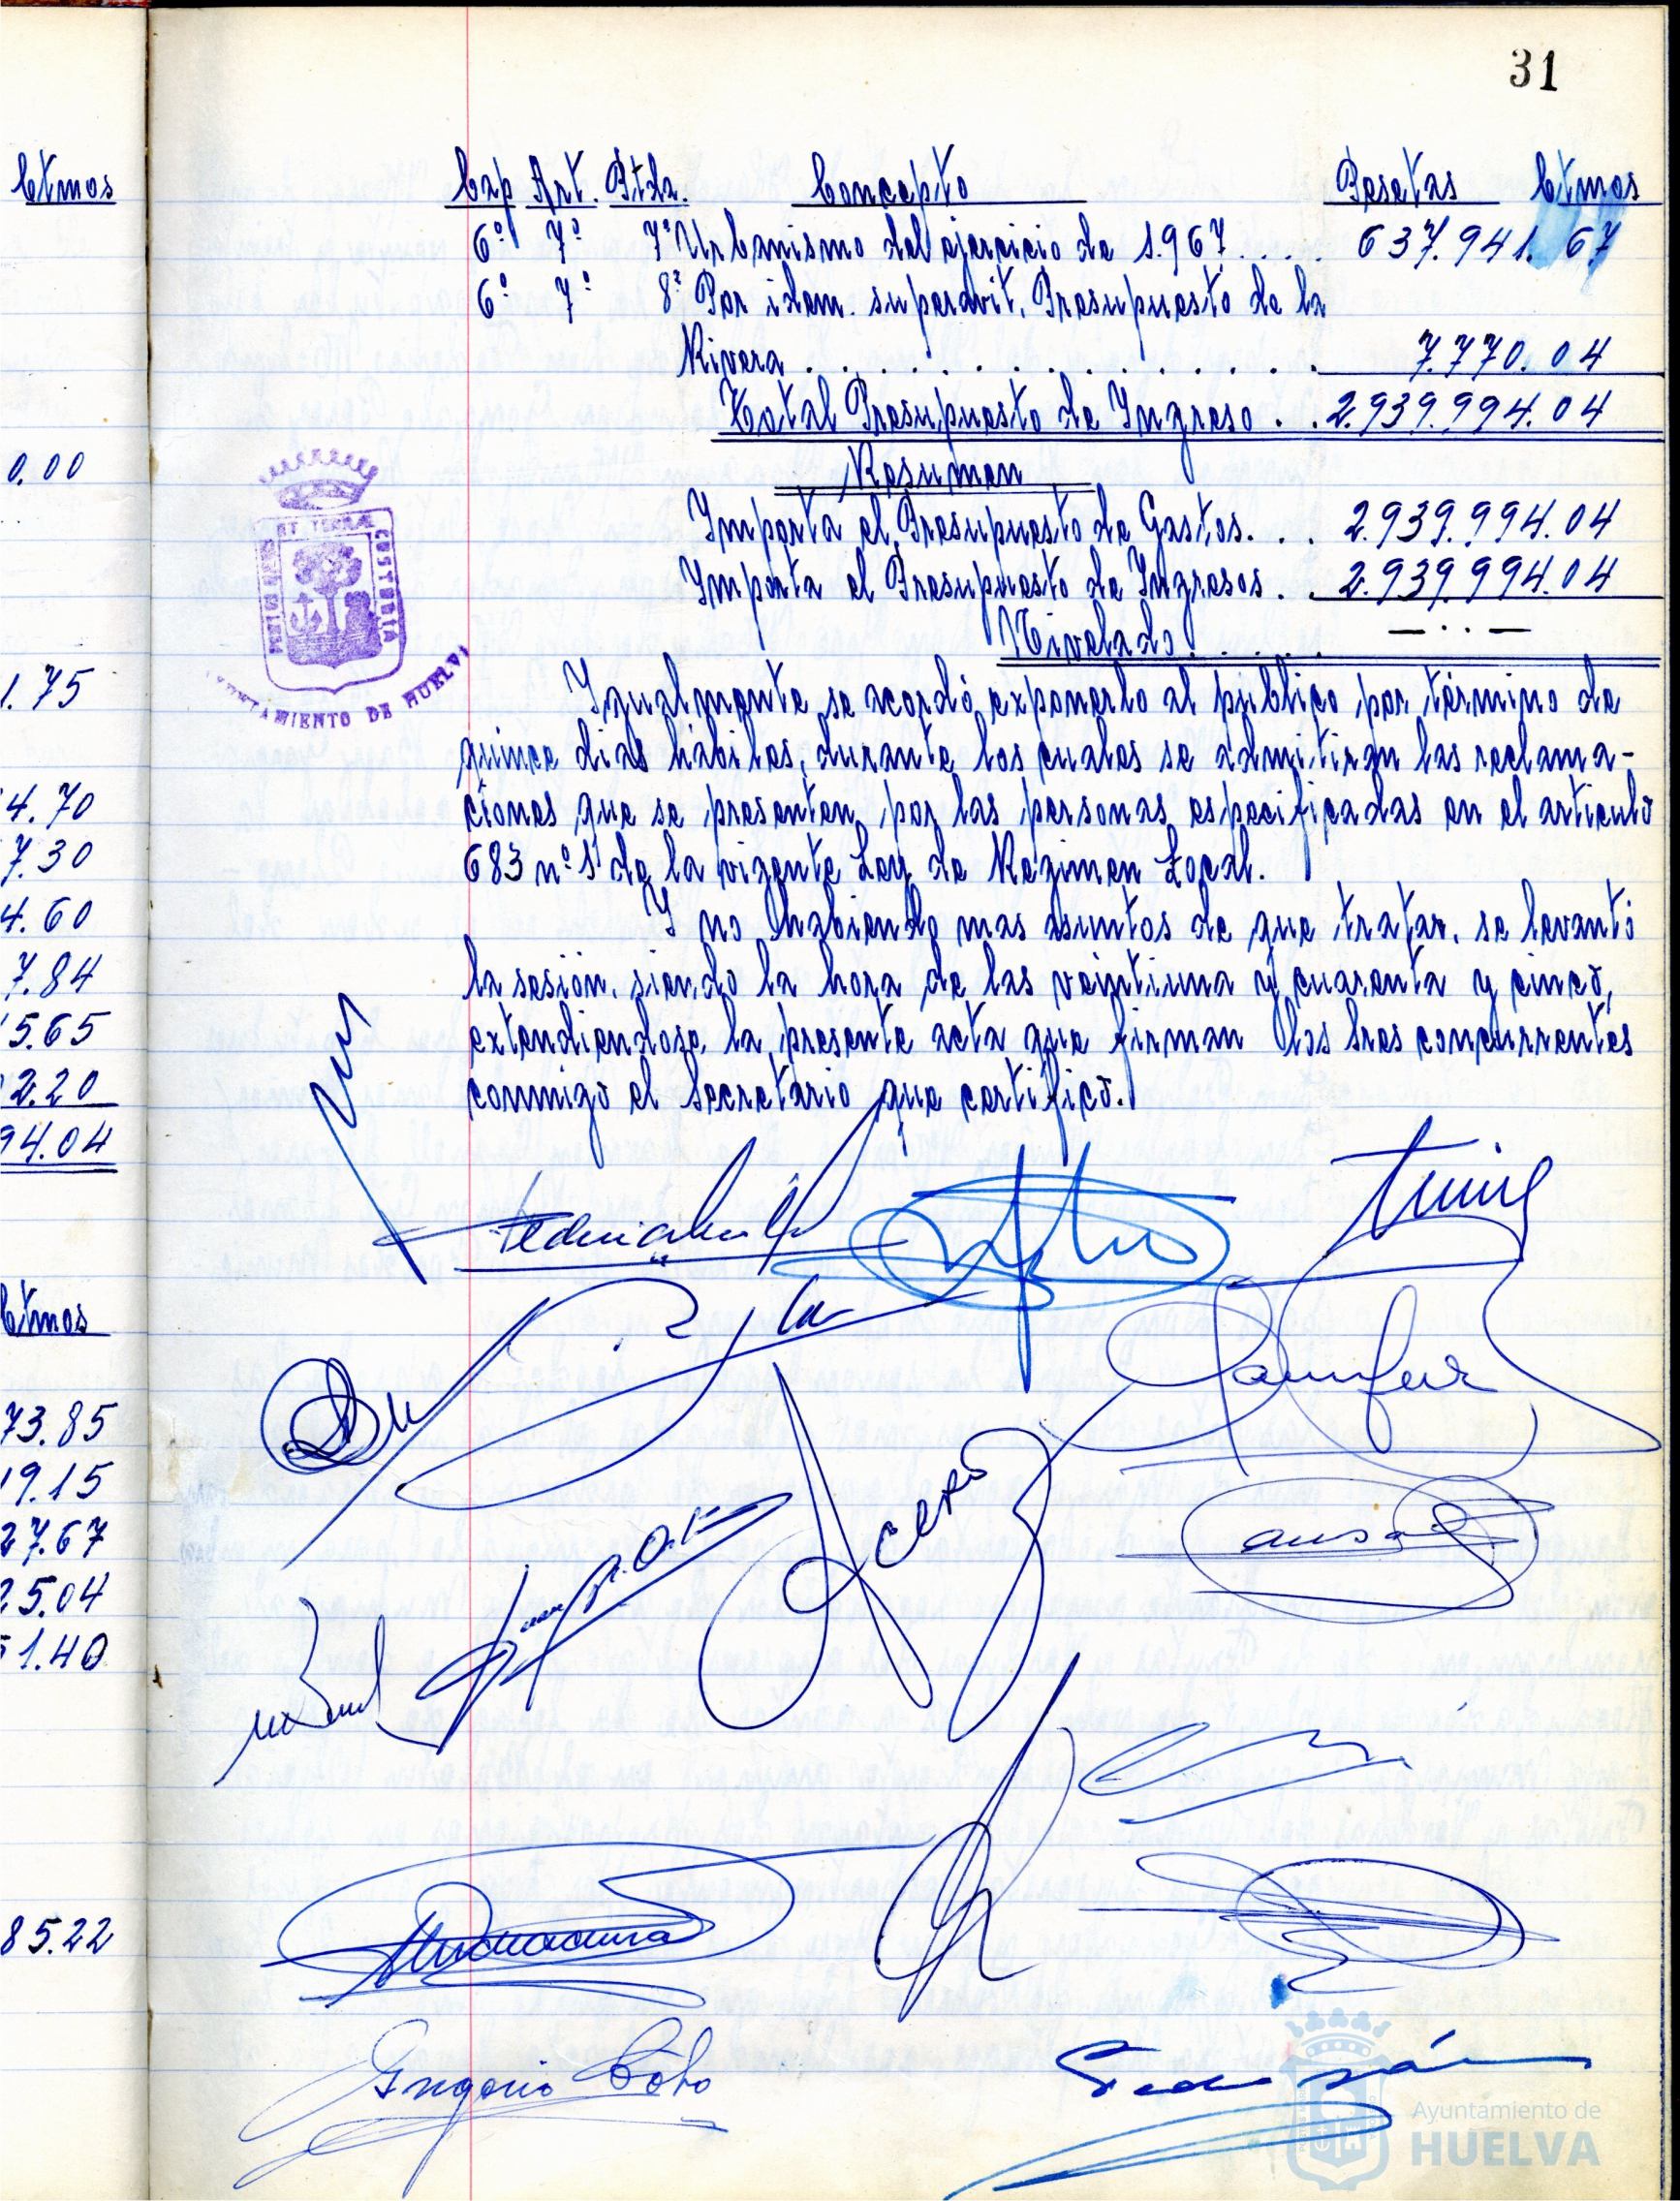 31
Ctmos
0.00
1.75
4.70
7.30
4.60
7.84
5.65
2.20
94.04
Ctmos
73.85
19.15
27.67
25.04
51.40
85.22
Cap Art. Ptda. Concepto Pesetas Ctmos
6º 7º 7º Urbanismo del ejercicio de 1.967 .... 637.941.67
6º 7º 8º Por idem. superavit. Presupuesto de la
Rivera . . . . . . . . . . 7.770.04
Total Presupuesto de Ingreso . . 2.939.994.04
Resumen
Importa el Presupuesto de Gastos. . . 2.939.994.04
Importa el Presupuesto de Ingresos . . 2.939.994.04
Nivelado . . . . . — . . —
PORTUS MARIS ET TERRÆ CUSTODIA
AYUNTAMIENTO DE HUELVA
Igualmente se acordó exponerlo al publico por término de
quince dias hábiles, durante los cuales se admitiran las reclama-
ciones que se presenten por las personas especificadas en el articulo
683 nº 1 de la vigente Ley de Regimen Local.
Y no habiendo mas asuntos de que tratar, se levantó
la sesión, siendo la hora de las veintiuna y cuarenta y cinco,
extendiendose la presente acta que firman los Sres concurrentes
conmigo el Secretario que certifico.
Gregorio Cobo
Ayuntamiento de
HUELVA